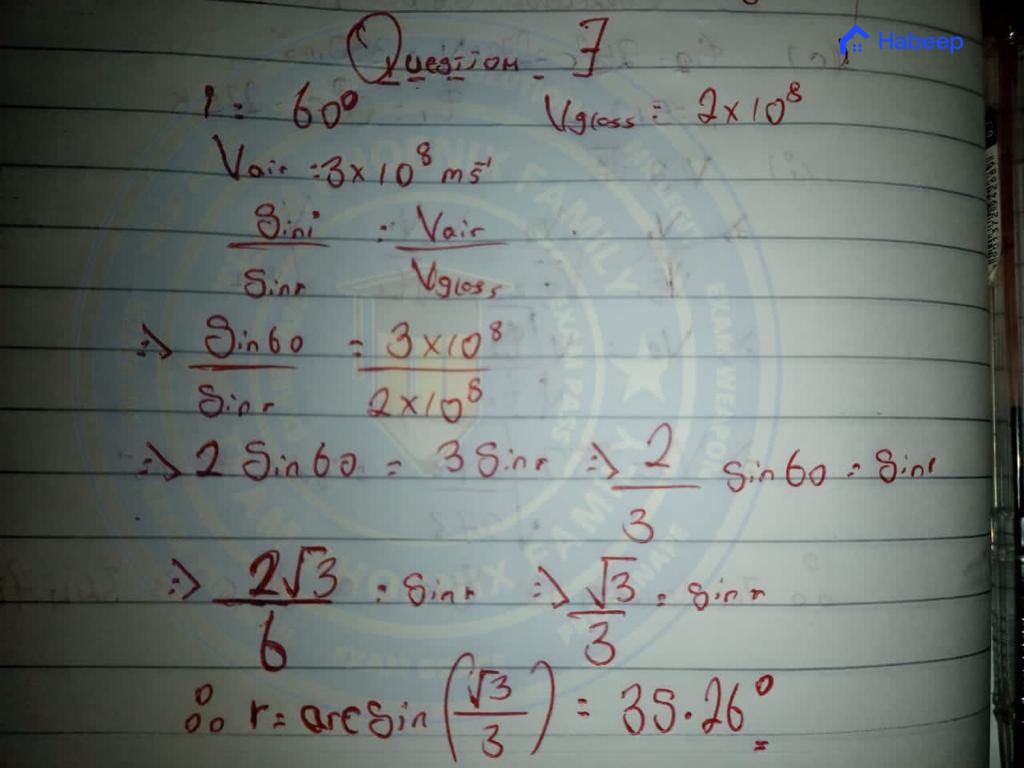 Habeep
Question - 7
i = 60° Vglass = 2 × 10⁸
Vair = 3 × 10⁸ ms⁻¹
Sin i / Sin r = Vair / Vglass
=> Sin 60 / Sin r = 3 × 10⁸ / 2 × 10⁸
=> 2 Sin 60 = 3 Sin r => 2/3 Sin 60 = Sin r
=> 2√3 / 6 = Sin r => √3 / 3 = Sin r
∴ r = arc Sin (√3 / 3) = 35.26°